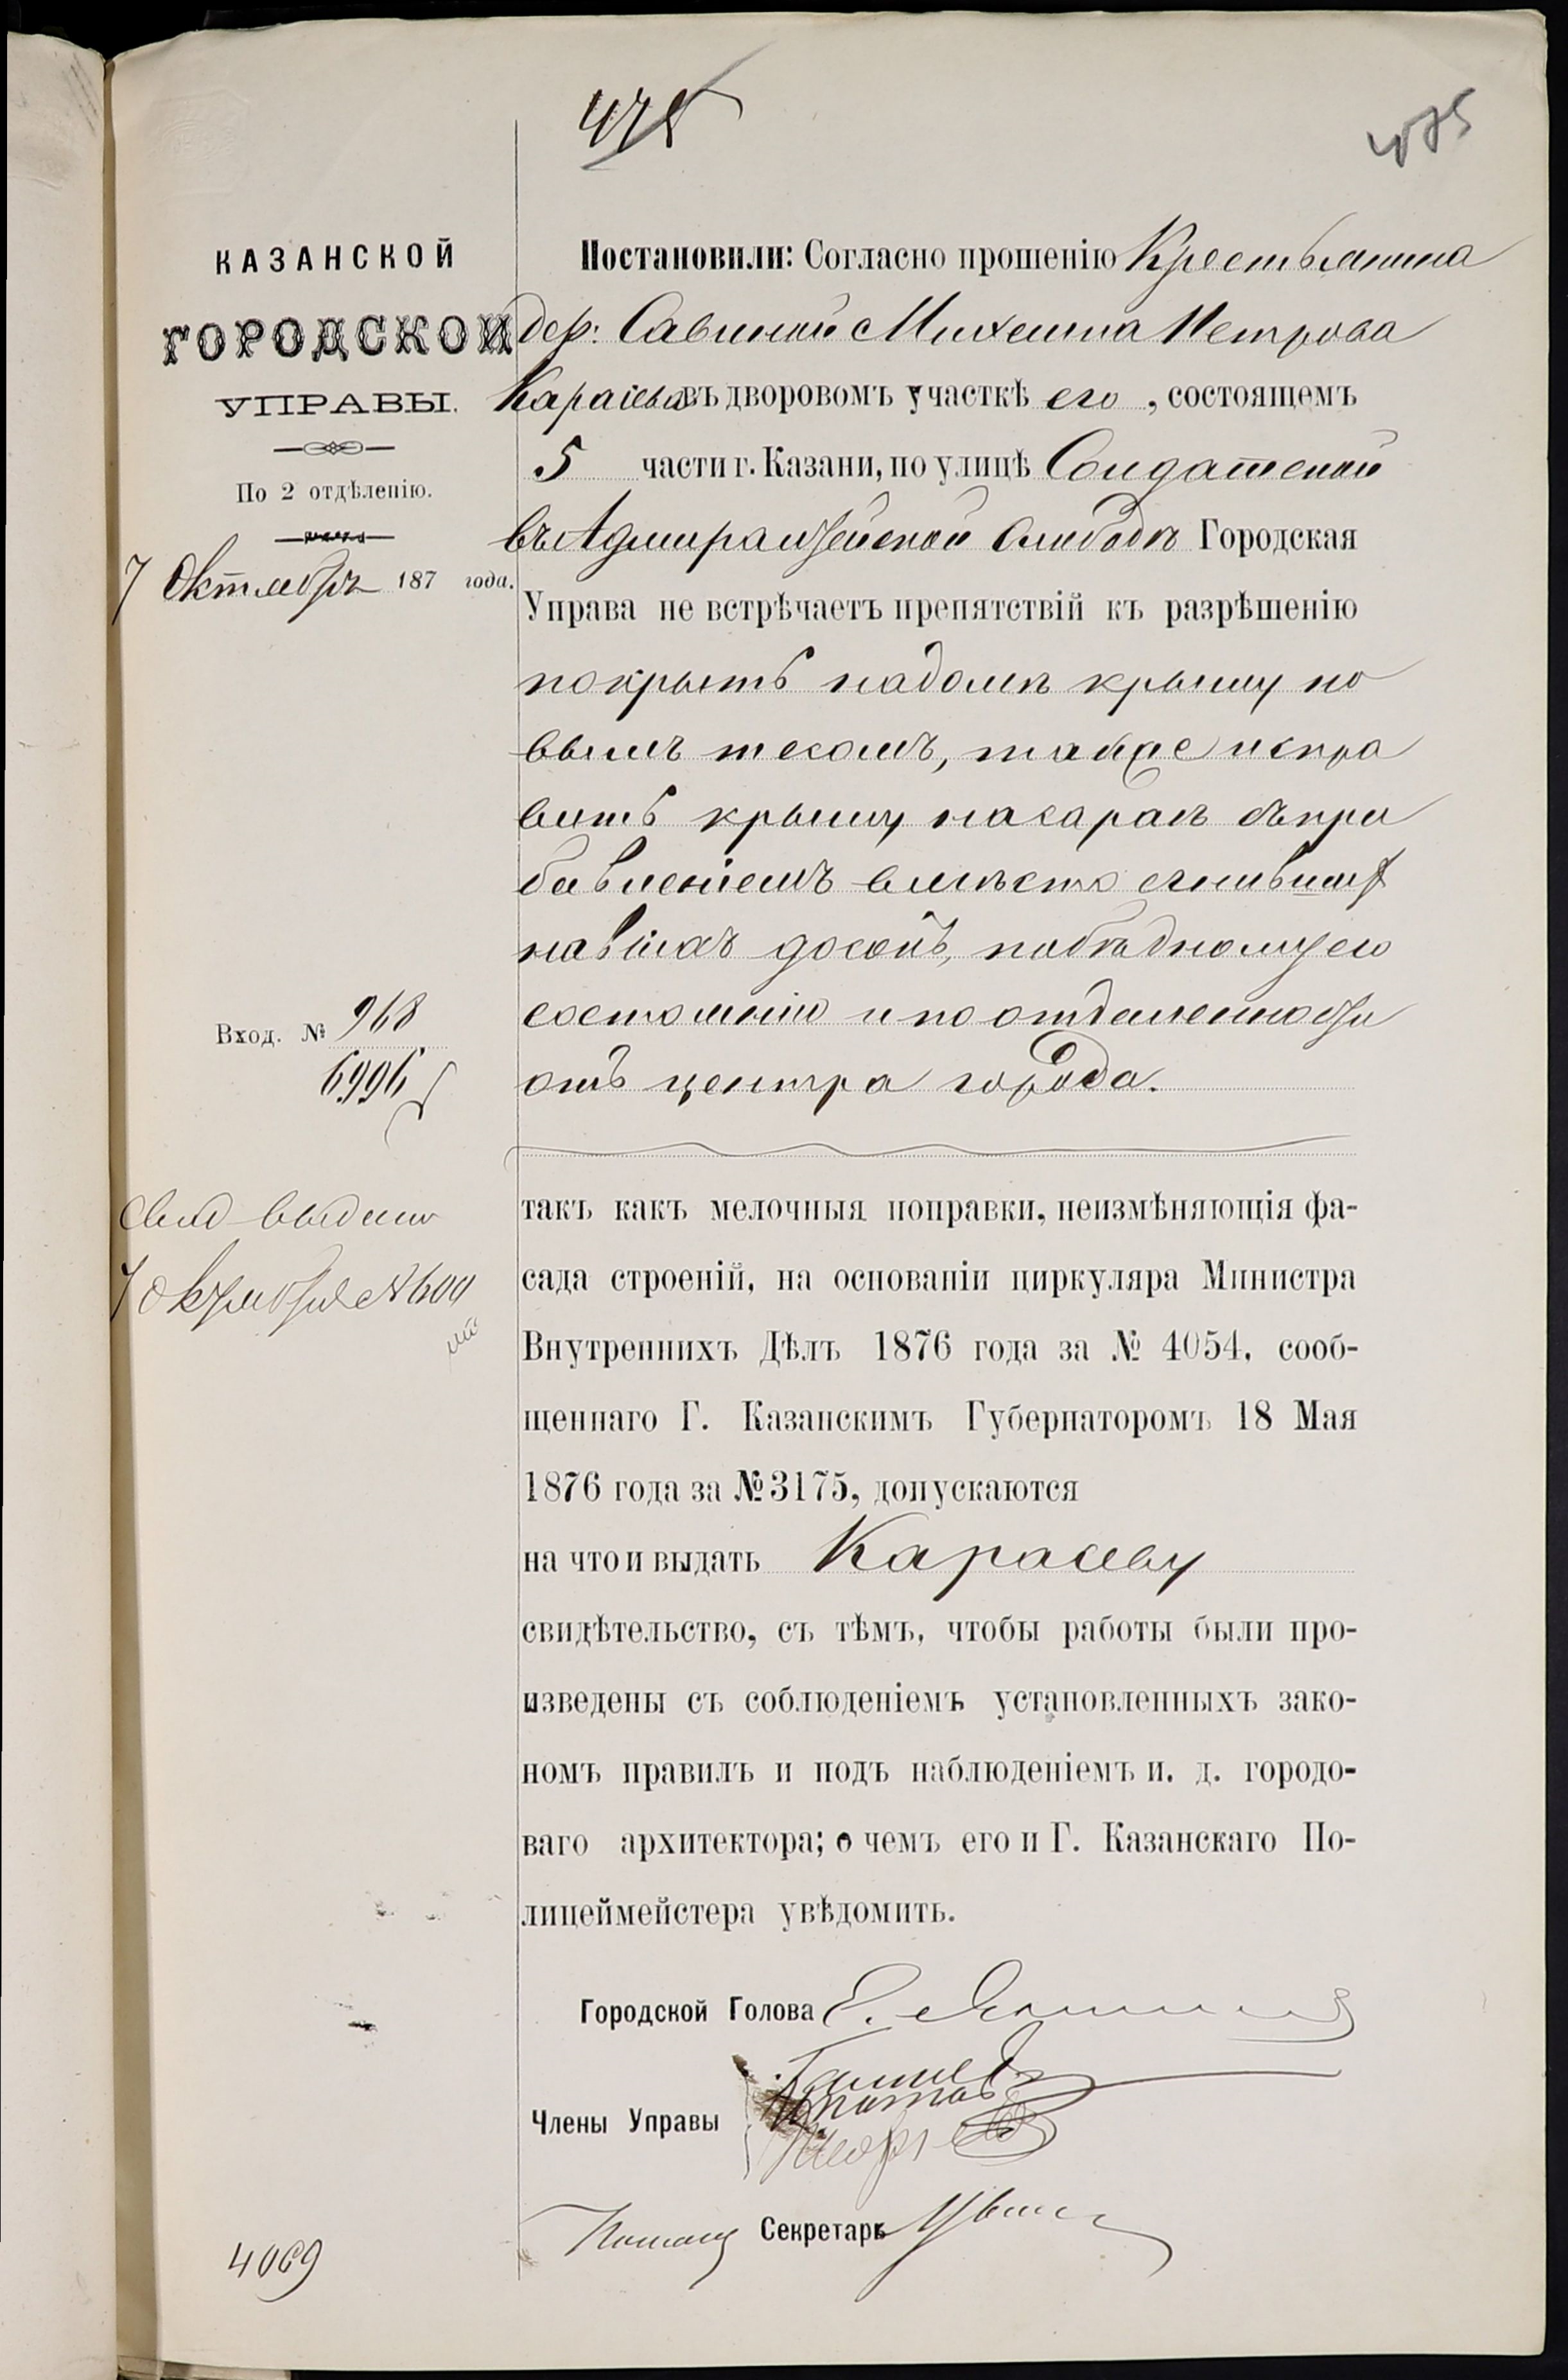 475
475
КАЗАНСКОЙ
ГОРОДСКОЙ
УПРАВЫ.
По 2 отдѣленію.
7 Октября 187 года.
Вход. № 968
6996
Свид выдано
7 октября № 600
4069
Постановили: Согласно прошенію Крестьянина
дер: Савиной Михаила Петрова
Карасева въ дворовомъ участкѣ его, состоящемъ
5 части г. Казани, по улицѣ Солдатской
въ Адмиралтейской слободѣ Городская
Управа не встрѣчаетъ препятствій къ разрѣшенію
покрыть на домѣ крышу но
вымъ тесомъ, также испра
вить крышу на сараѣ съ при
бавленіемъ вмѣсто сгнивших
новыхъ досокъ, по бѣдному его
состоянію и по отдаленности
отъ центра города.
такъ какъ мелочныя поправки, неизмѣняющія фа-
сада строеній, на основаніи циркуляра Министра
Внутреннихъ Дѣлъ 1876 года за № 4054, сооб-
щеннаго Г. Казанскимъ Губернаторомъ 18 Мая
1876 года за № 3175, допускаются
на что и выдать Карасеву
свидѣтельство, съ тѣмъ, чтобы работы были про-
изведены съ соблюденіемъ установленныхъ зако-
номъ правилъ и подъ наблюденіемъ и. д. городо-
ваго архитектора; о чемъ его и Г. Казанскаго По-
лицеймейстера увѣдомить.
Городской Голова
Члены Управы
Секретарь